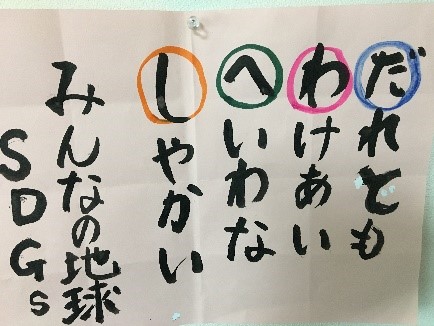 だれとも
わけあい
へいわな
しやかい
みんなの地球
SDGs